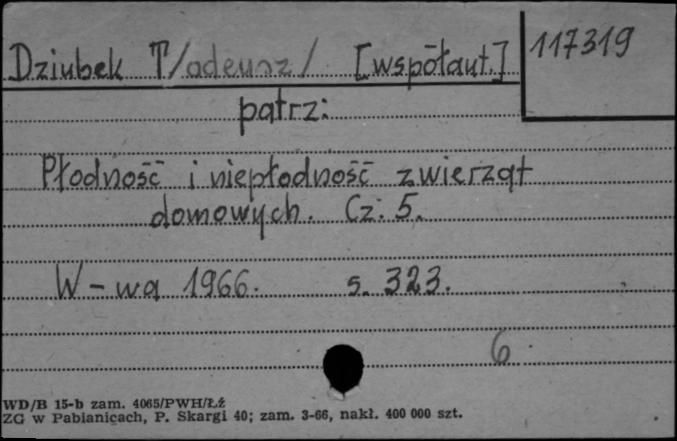 Dziubek T/adeusz/ [współaut.] 117319
patrz:
Płodność i niepłodność zwierząt
domowych. Cz. 5.
W-wa 1966. s. 323.
6
WD/B 15-b zam. 4065/PWH/Łź
ZG w Pabianicach, P. Skargi 40; zam. 3-66, nakł. 400 000 szt.